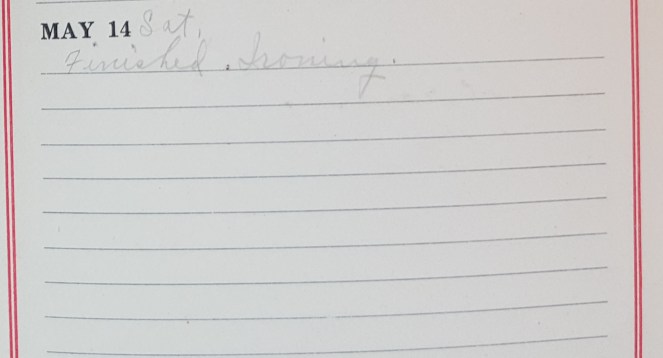 MAY 14 Sat.
Finished. Ironing.